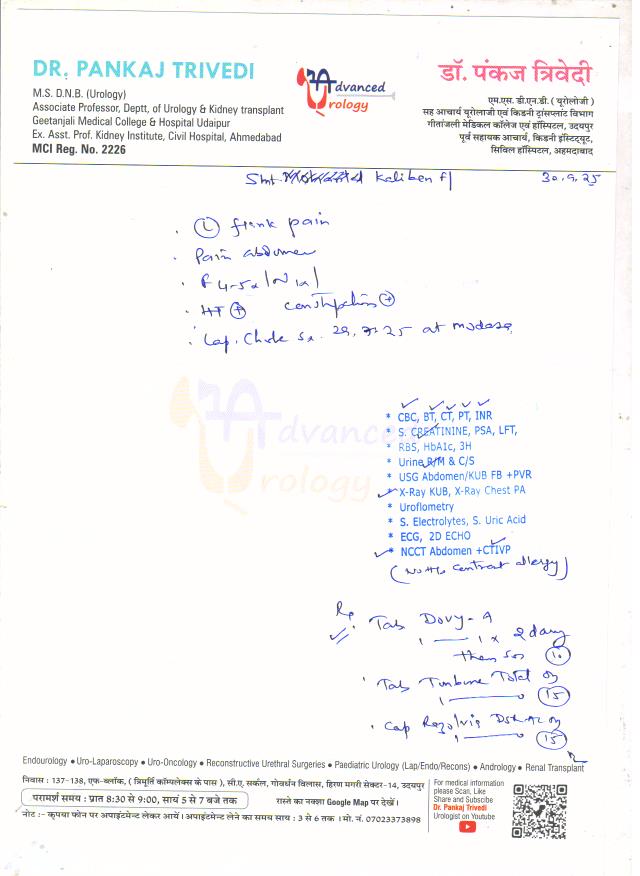 DR. PANKAJ TRIVEDI
M.S. D.N.B. (Urology)
Associate Professor, Deptt, of Urology & Kidney transplant
Geetanjali Medical College & Hospital Udaipur
Ex. Asst. Prof. Kidney Institute, Civil Hospital, Ahmedabad
MCI Reg. No. 2226
Advanced
Urology
डॉ. पंकज त्रिवेदी
एम.एस. डी.एन.डी. ( यूरोलोजी )
सह आचार्य यूरोलोजी एवं किडनी ट्रांसप्लांट विभाग
गीतांजली मेडिकल कॉलेज एवं हॉस्पिटल, उदयपुर
पूर्व सहायक आचार्य, किडनी इंस्टिट्यूट,
सिविल हॉस्पिटल, अहमदाबाद
Smt. Kaliben F/
30.9.25
(L) flank pain
Pain abdomen
F 4-5x/N 1x/
HT + Constipation +
Lap. Chole Sx. at modasa
Advanced
Urology
* CBC, BT, CT, PT, INR
* S. CREATININE, PSA, LFT,
* RBS, HbAIc, 3H
* Urine R/M & C/S
* USG Abdomen/KUB FB +PVR
* X-Ray KUB, X-Ray Chest PA
* Uroflometry
* S. Electrolytes, S. Uric Acid
* ECG, 2D ECHO
* NCCT Abdomen +CTIVP
(No H/o Contrast allergy)
Rp
Tab Dovy-A
1 — 1 x 2 days
then sos (10)
Tab Total
1 — 0 (15)
Cap DSR
1 — 0 (15)
Endourology • Uro-Laparoscopy • Uro-Oncology • Reconstructive Urethral Surgeries • Paediatric Urology (Lap/Endo/Recons) • Andrology • Renal Transplant
निवास : 137-138, एफ-ब्लॉक, ( त्रिमूर्ति कॉम्पलेक्स के पास ), सी.ए. सर्कल, गोवर्धन विलास, हिरण मगरी सेक्टर-14, उदयपुर
परामर्श समय : प्रात 8:30 से 9:00, सायं 5 से 7 बजे तक
रास्ते का नक्शा Google Map पर देखें।
नोट :- कृपया फोन पर अपाइंटमेन्ट लेकर आयें। अपाइंटमेन्ट लेने का समय साय : 3 से 6 तक । मो. नं. 07023373898
For medical information
please Scan, Like
Share and Subscibe
Dr. Pankaj Trivedi
Urologist on Youtube